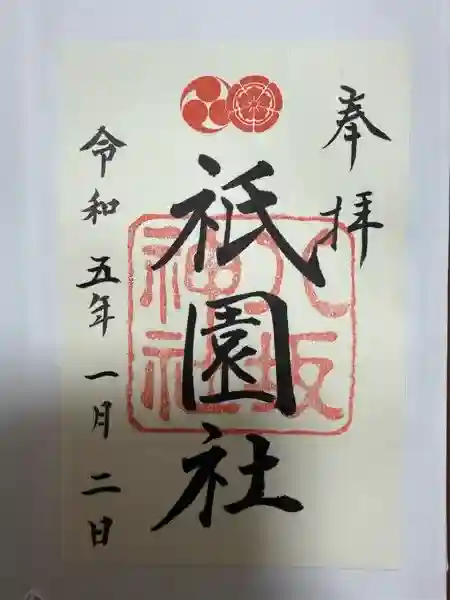 奉拝
祇園社
八坂
神社
令和五年一月二日